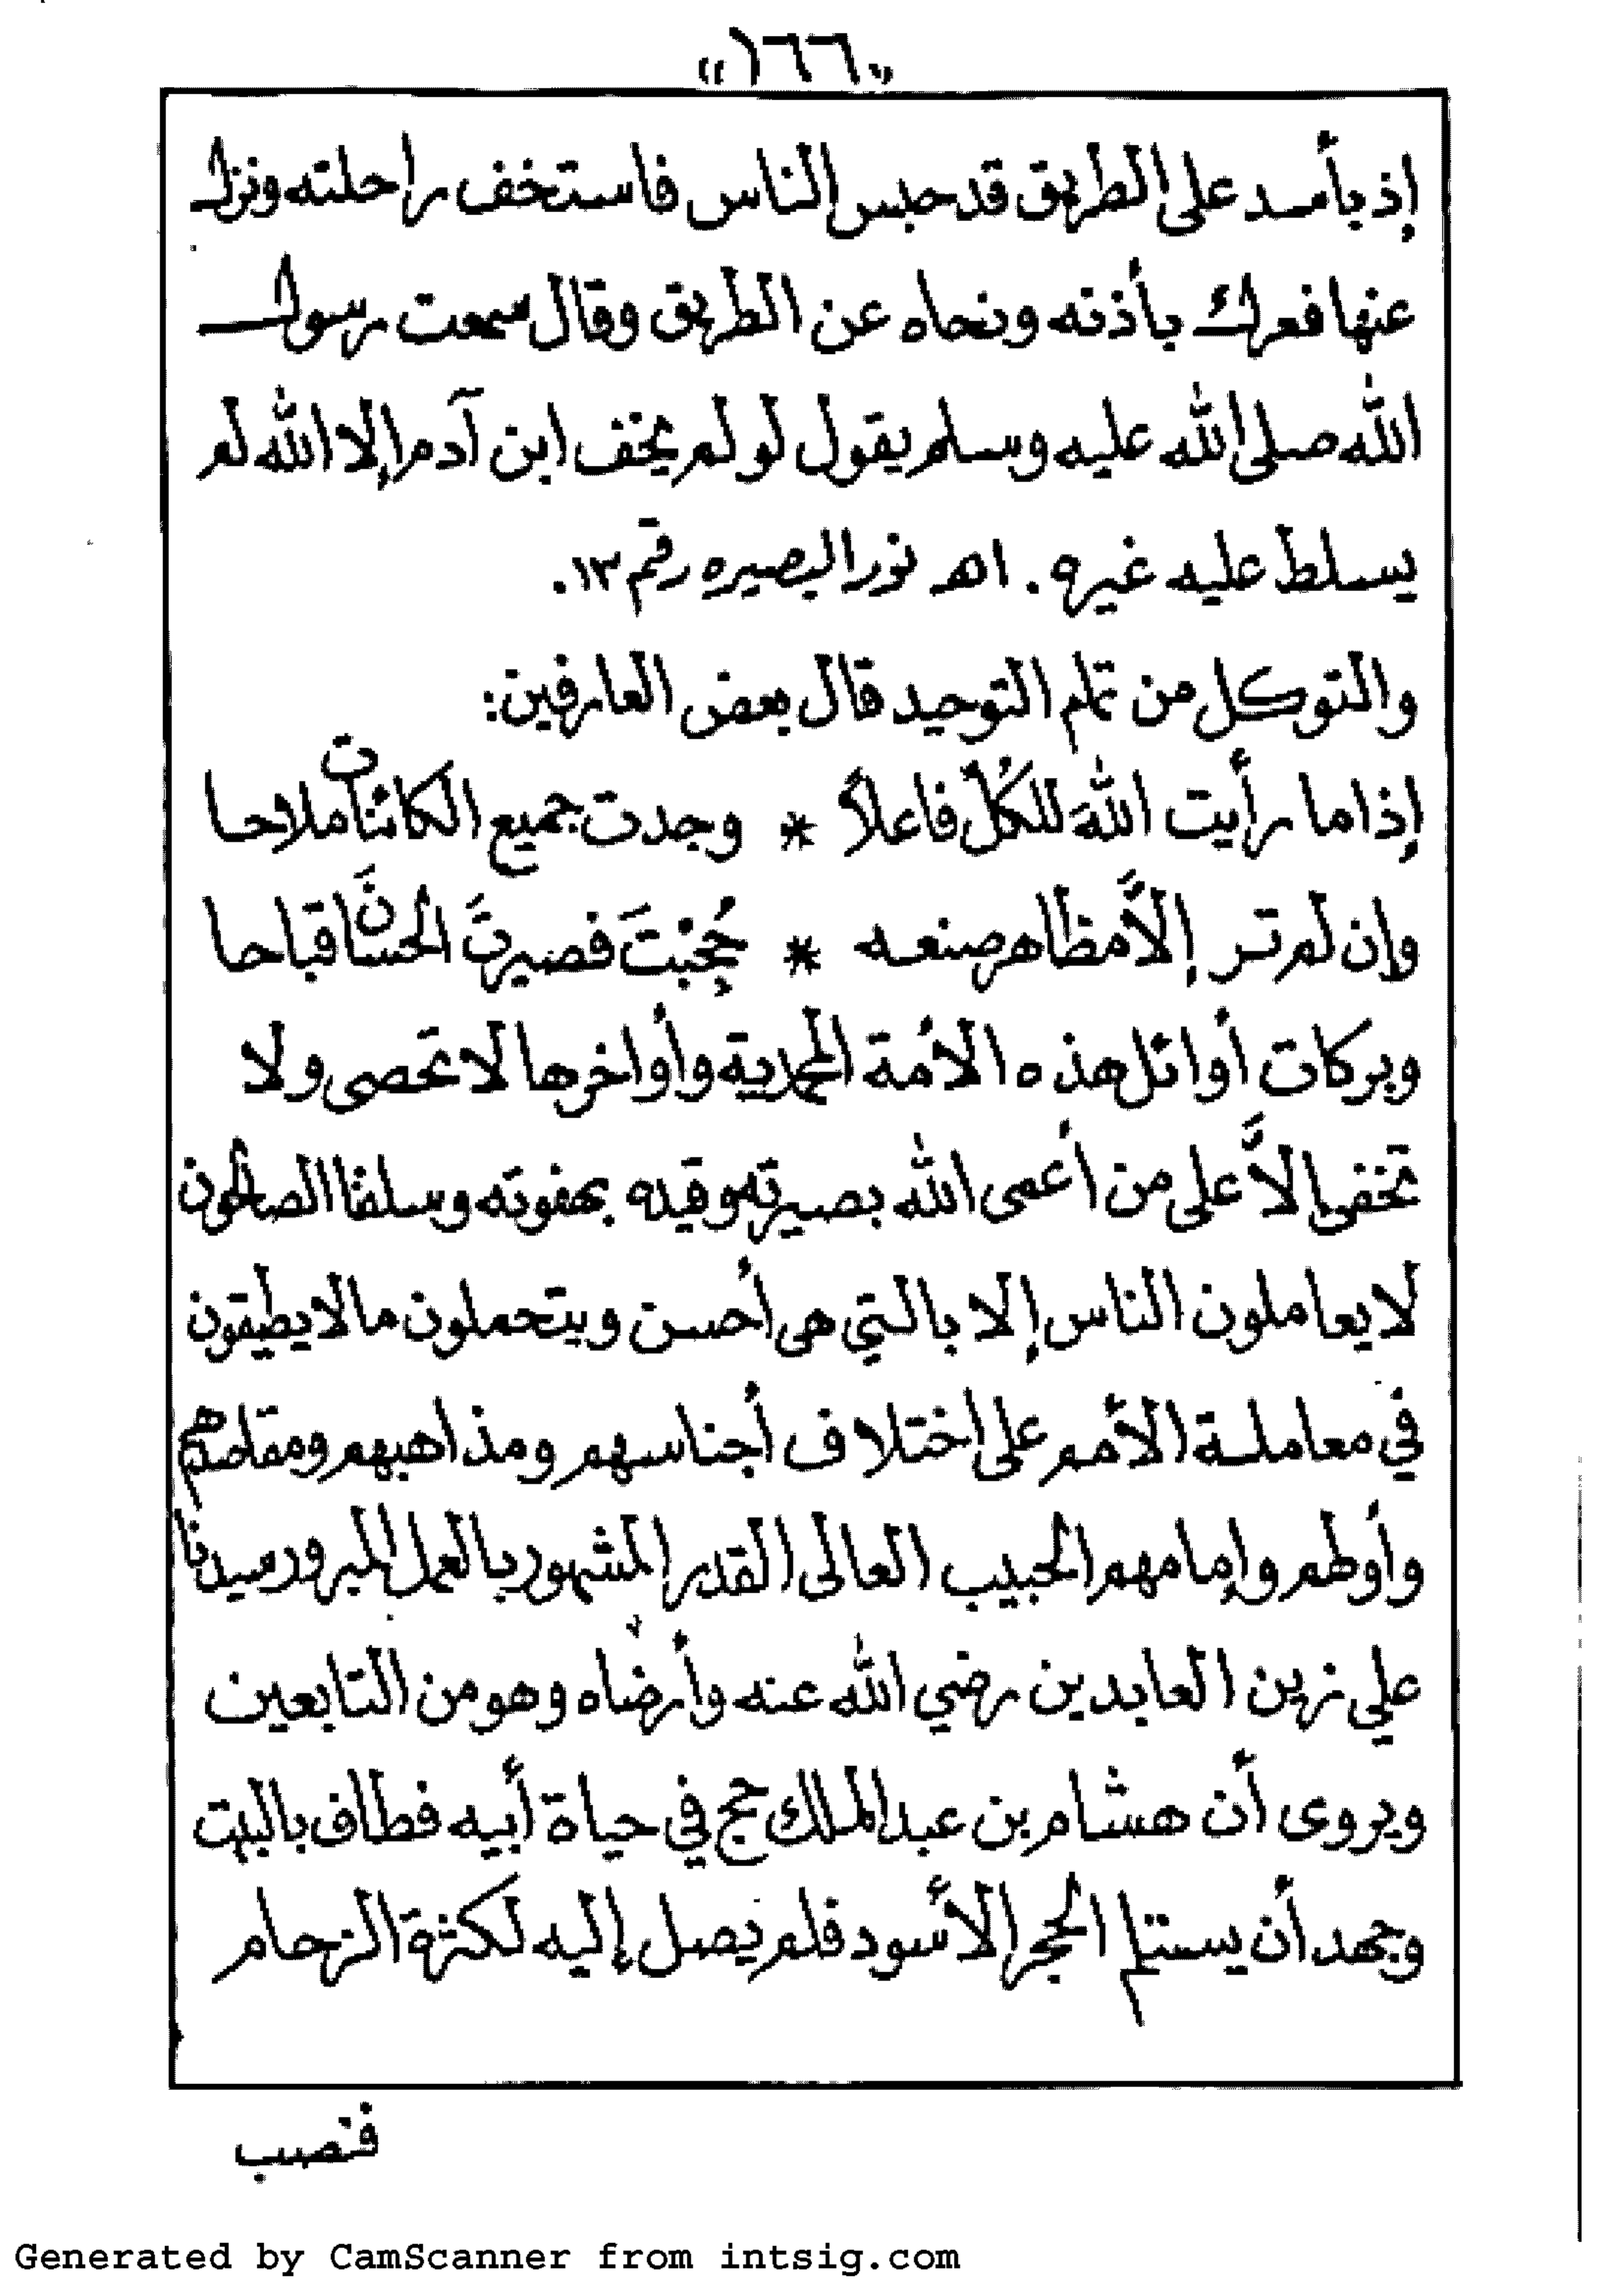 «١٦٦»
إذ بأسد على الطريق قد حبس الناس فاستخف راحلته ونزل
عنها فعرك بأذنه ونحاه عن الطريق وقال سمعت رسول
الله صلى الله عليه وسلم يقول لو لم يخف ابن آدم إلا الله لم
يسلط عليه غيره . اهـ نور البصيره رقم ١٣.
والتوكل من تمام التوحيد قال بعض العارفين:
إذا ما رأيت اللهَ للكُلِّ فاعلاً * وجدت جميع الكائنات ملاحا
وإن لم تر إلاَّ مظاهر صنعه * حُجِبْتَ فصيرتَ الحسانَ قباحا
وبركات أوائل هذه الأمة المحمدية وأواخرها لا تحصى ولا
تخفى إلاَّ على من أعمى الله بصيرته وقيده بهفوته وسلفنا الصالحون
لا يعاملون الناس إلا بالتي هي أحسن ويتحملون ما لا يطيقون
في معاملة الأمم على اختلاف أجناسهم ومذاهبهم ومقاصدهم
وأولهم وإمامهم الحبيب العالى القدر المشهور بالعمل المبرور سيدنا
علي زين العابدين رضي الله عنه وأرضاه وهو من التابعين
ويروى أن هشام بن عبد الملك حج في حياة أبيه فطاف بالبيت
وجهد أن يستلم الحجر الأسود فلم يصل إليه لكثرة الزحام
فنصب
Generated by CamScanner from intsig.com